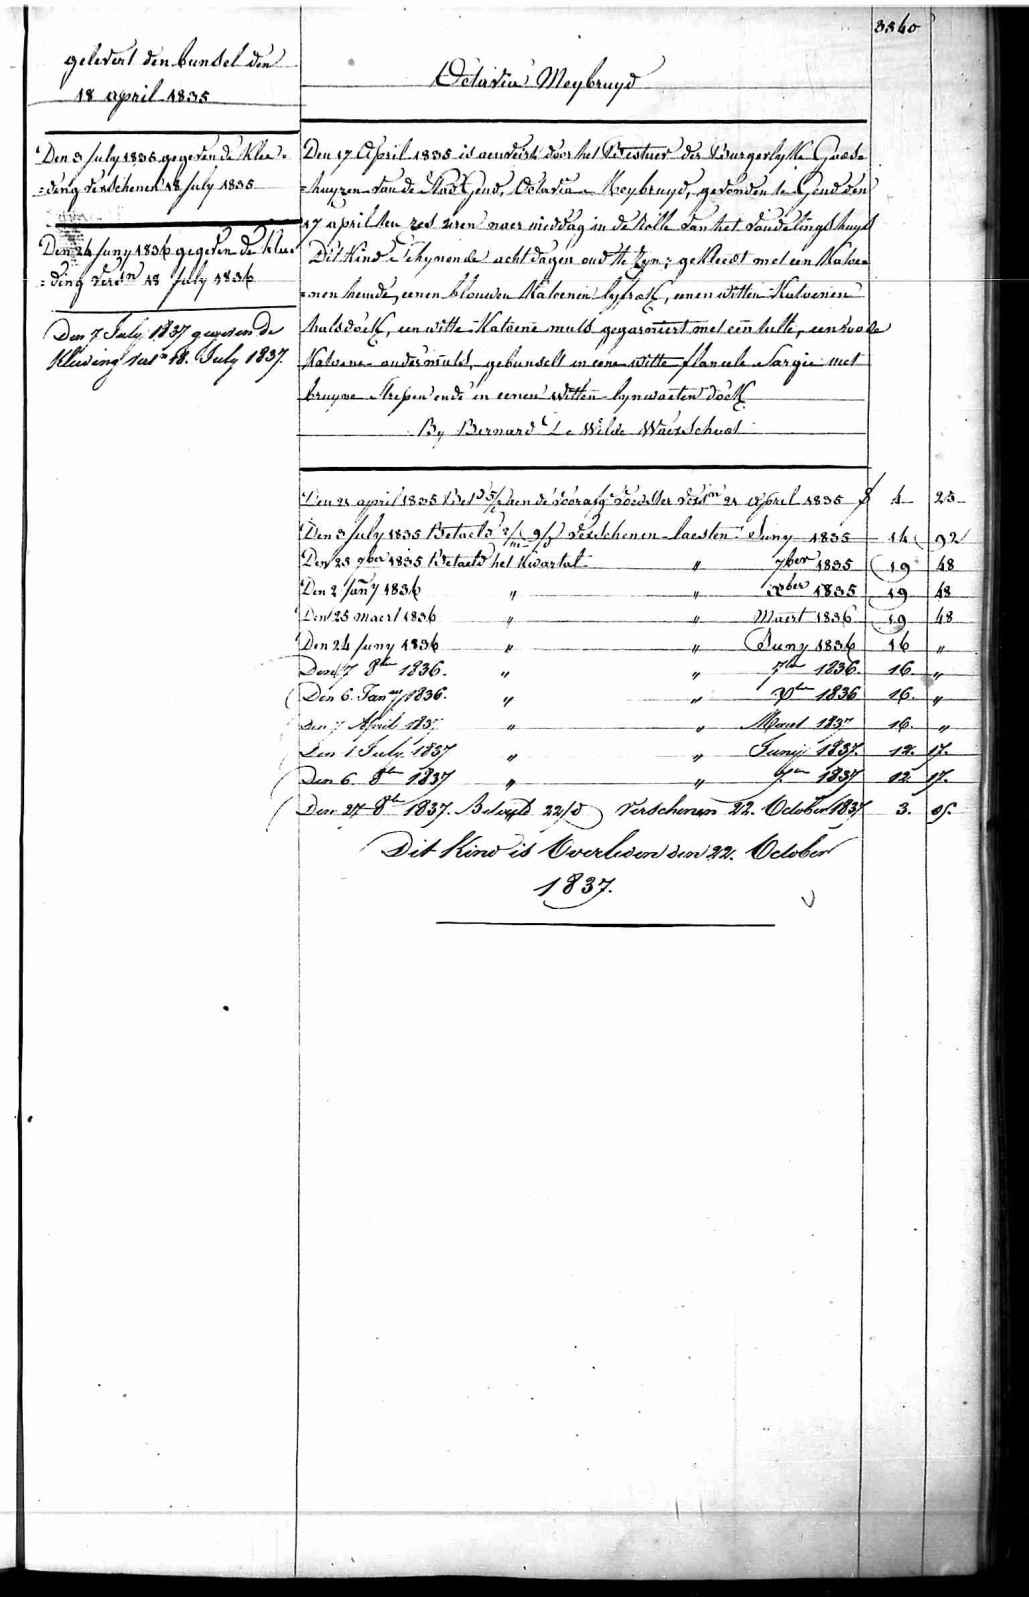 3360
gelevert den bunsel den
18 april 1835
Octavia Meybruyd
Den 3 July 1835 gegeven de Klee=
=ding verschenen 18 July 1835
Den 24 Juny 1836 gegeven de Klee=
=ding versn 18 July 1836
Den 7 July 1837 gegeven de
Kleeding versn 18. July 1837.
Den 17 April 1835 is aenveirt door het Bestuer der Burgerlyke Godse
=huyzen van de Stad Gend, Octavia Meybruyd, gevonden te Gend den
17 april ten zes uren naer middag in de Rolle van het vondelingshuys
Dit Kind schynende acht dagen oud te zyn; gekleedt met een Katoe=
=nen hemde, eenen blouwen Katoenen lyfrok, eenen witten Katoenen
halsdoek, een witte Katoene muts gegarniert met een tulle, een roode
Katoene ondermuts, gebunselt in eene witte flanele sargie met
bruyne strepen ende in eenen witten lynwaeten doek
By Bernard De Wilde Waerschoot
Den 21 april 1835 Bet aen de voorafge voedster versn 21 April 1835 f 4 23
Den 3 July 1835 Betaeld verschenen laesten Juny 1835 14 92
Den 25 7ber 1835 Betaeld het Kwartal " 7ber 1835 19 48
Den 2 Jany 1836 " " Xber 1835 19 48
Den 25 maert 1836 " " Maert 1836 19 48
Den 24 Juny 1836 " " Juny 1836 16 "
Den 7 8ber 1836. " " 7ber 1836. 16. "
Den 6. Jany 1836. " " Xber 1836 16. "
Den 7 April 1837 " " Maert 1837 16. "
Den 1 July 1837 " " Juny 1837. 12. 17.
Den 6. 8ber 1837 " " 7ber 1837 12 17.
Den 27 8ber 1837. Betaeld 22/d verschenen 22. October 1837 3. 05.
Dit Kind is Overleden den 22. October
1837.